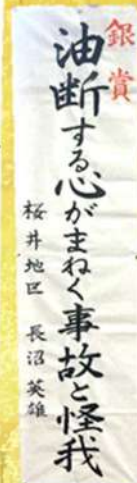 銀賞
油断する心がまねく事故と怪我
桜井地区 長沼英雄